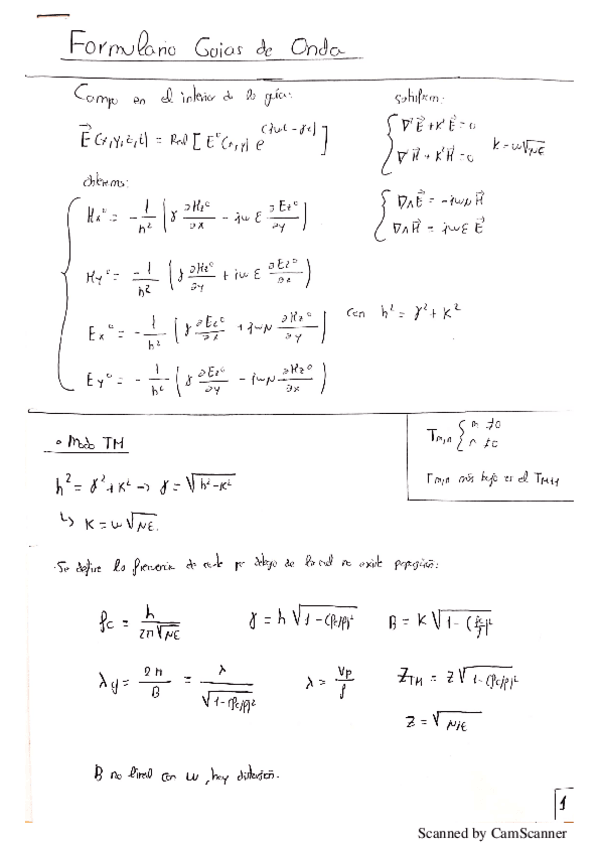 Formulario Guias de Onda
Campo en el interior de la guía:
E⃗(x,y,z,t) = Real [ E°(x,y) e^(jwt - γz) ]
Satisfacen:
∇²E⃗ + K²E⃗ = 0
∇²H⃗ + K²H⃗ = 0
K = w√με
∇∧E⃗ = -jωμH⃗
∇∧H⃗ = jωεE⃗
Hx° = - 1/h² ( γ ∂Hz°/∂x - jωε ∂Ez°/∂y )
Hy° = - 1/h² ( γ ∂Hz°/∂y + jωε ∂Ez°/∂x )
Ex° = - 1/h² ( γ ∂Ez°/∂x + jωμ ∂Hz°/∂y )
con h² = γ² + K²
Ey° = - 1/h² ( γ ∂Ez°/∂y - jωμ ∂Hz°/∂x )
• Modo TM
Tm,n { m ≠0
n ≠0
Tm,n más bajo es el TM11
h² = γ² + K² → γ = √h² - K²
↳ K = w√με.
·Se define la frecuencia de corte por debajo de la cual no existe propagación:
fc = h / 2π√με
γ = h √1 - (fc/f)²
β = K √1 - (fc/f)²
λg = 2π/β = λ / √1 - (fc/f)²
λ = Vp/f
ZTM = Z √1 - (fc/f)²
Z = √μ/ε
β no lineal con w, hay distorsión.
1
Scanned by CamScanner